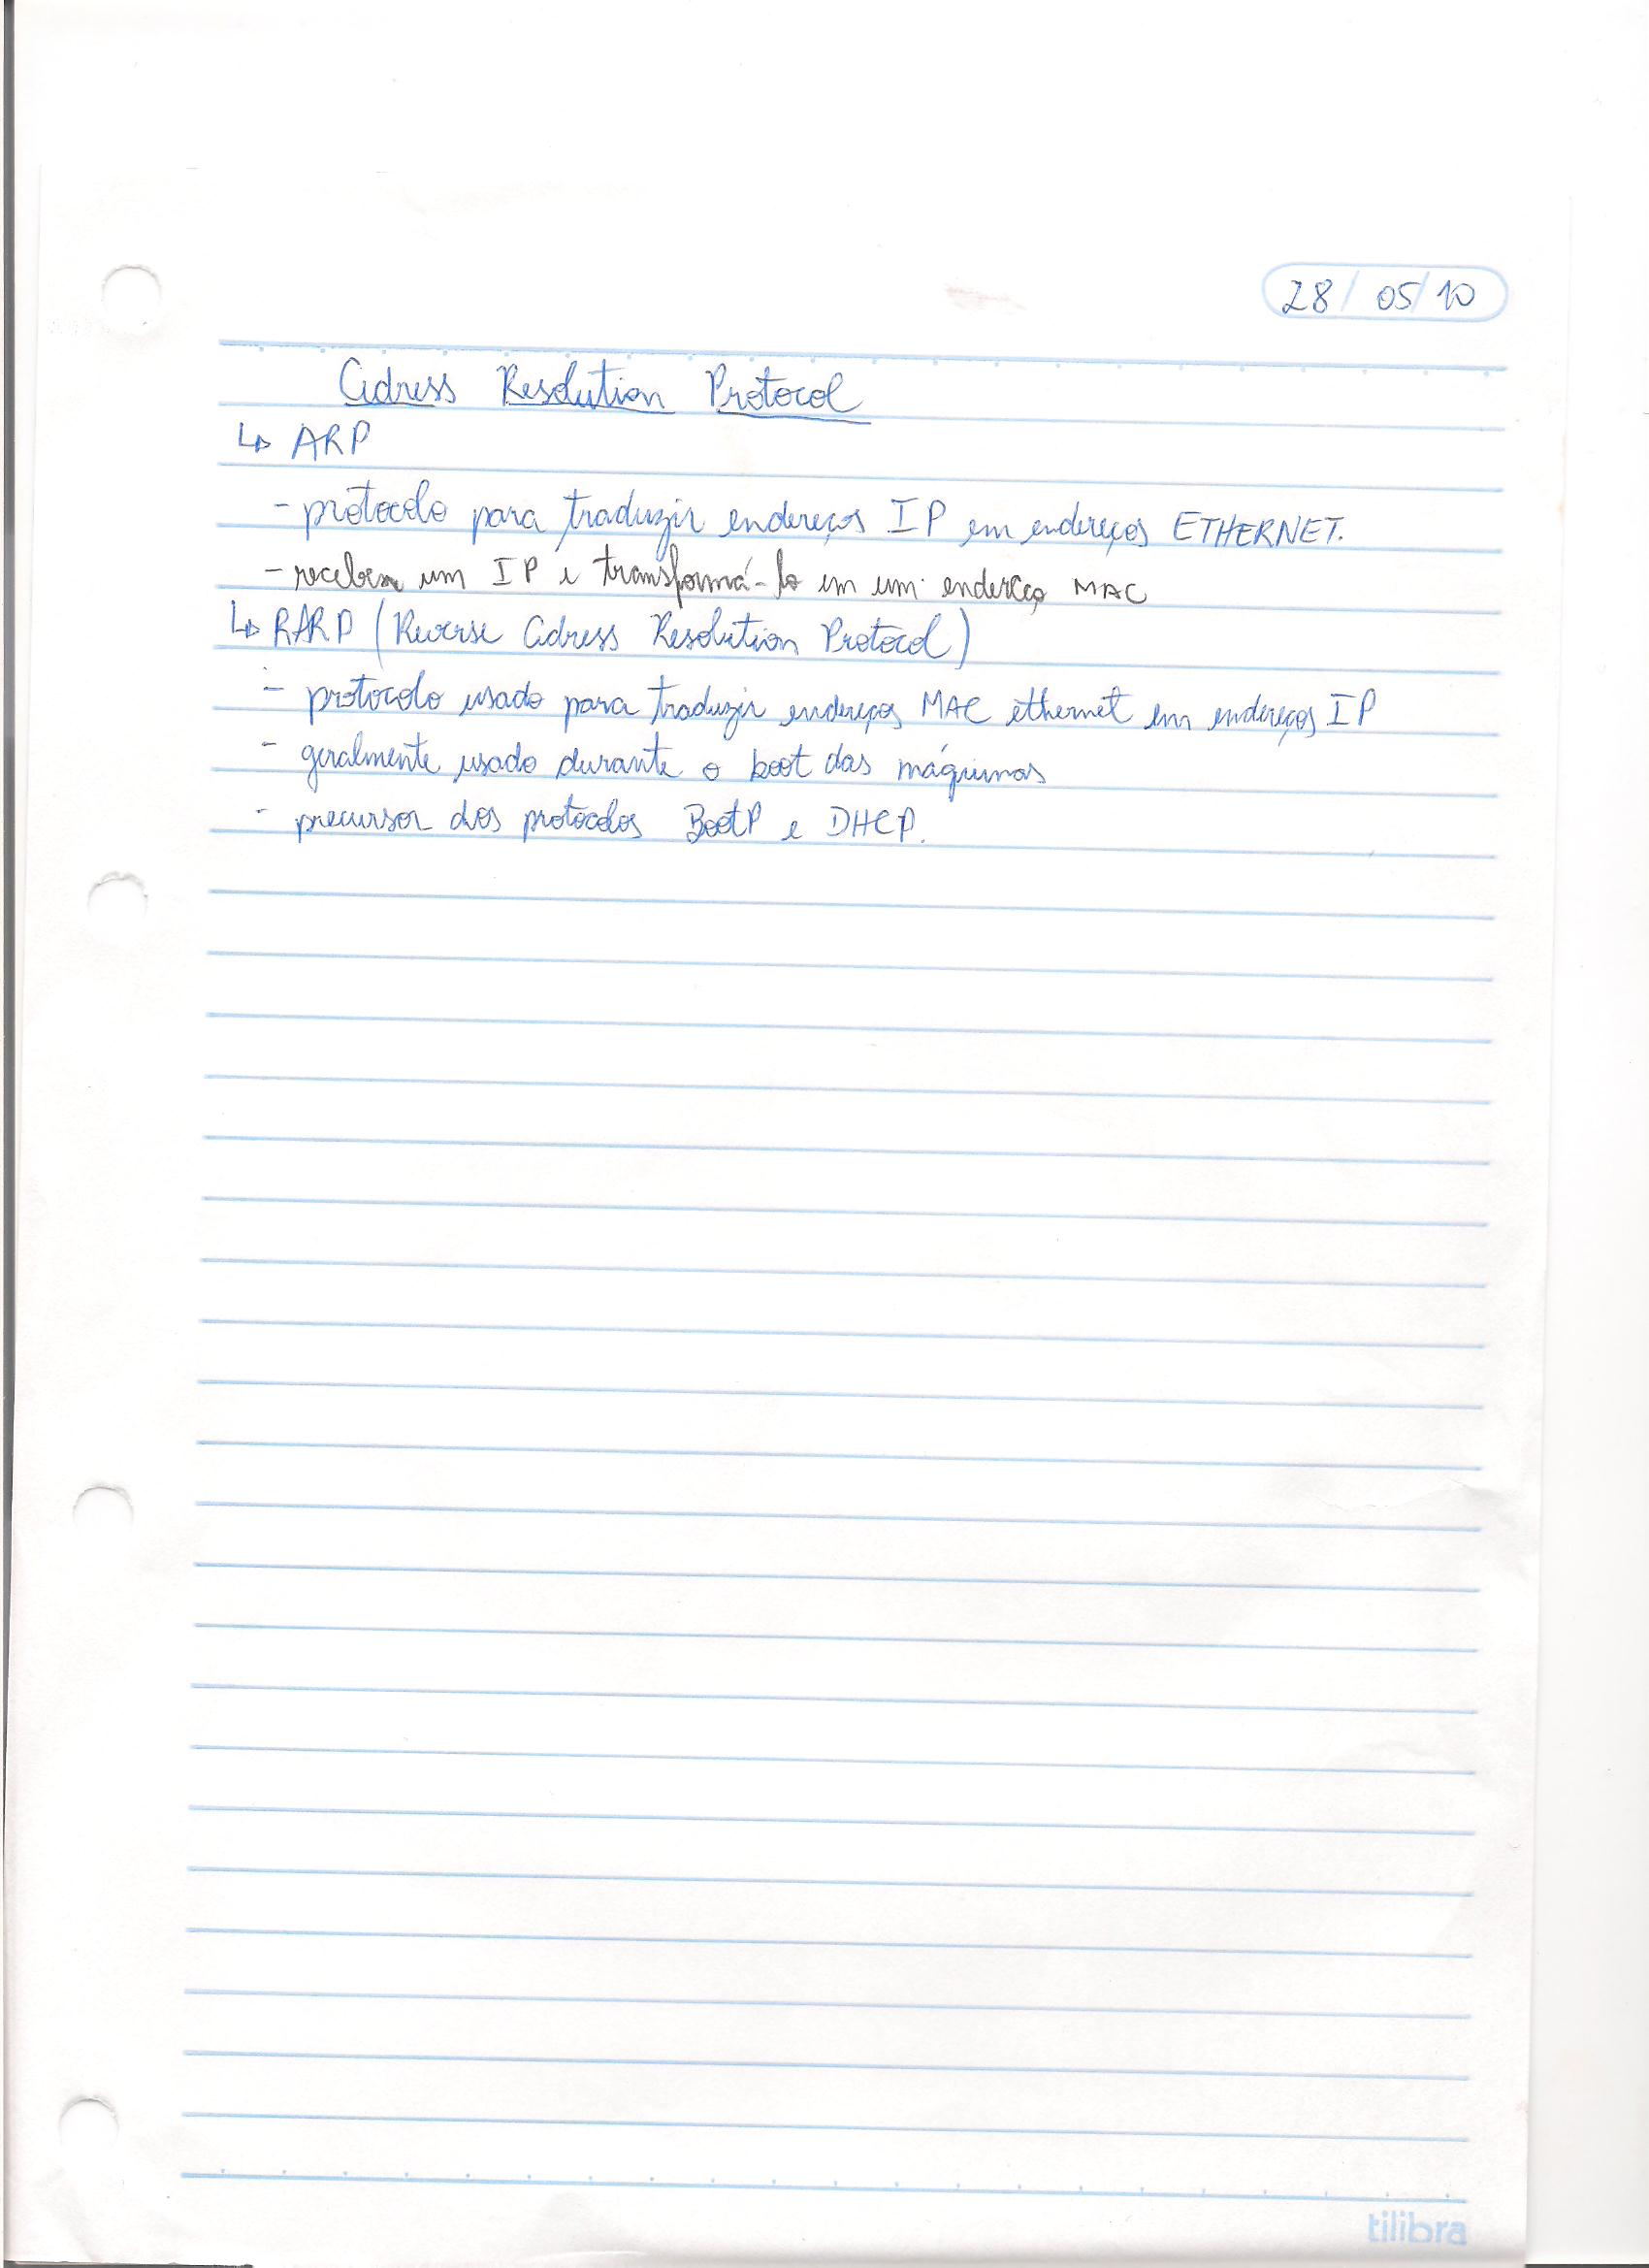 28/05/10
Adress Resolution Protocol
↳ ARP
- protocolo para traduzir endereços IP em endereços ETHERNET.
- recebem um IP e transformá-lo em um endereço MAC
↳ RARP (Reverse Adress Resolution Protocol)
- protocolo usado para traduzir endereços MAC ethernet em endereços IP
- geralmente usado durante o boot das máquinas
- precursor dos protocolos BootP e DHCP.
tilibra